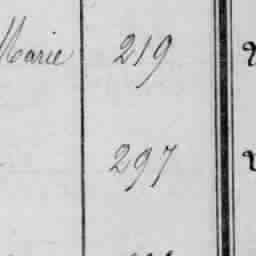 Marie 219
297